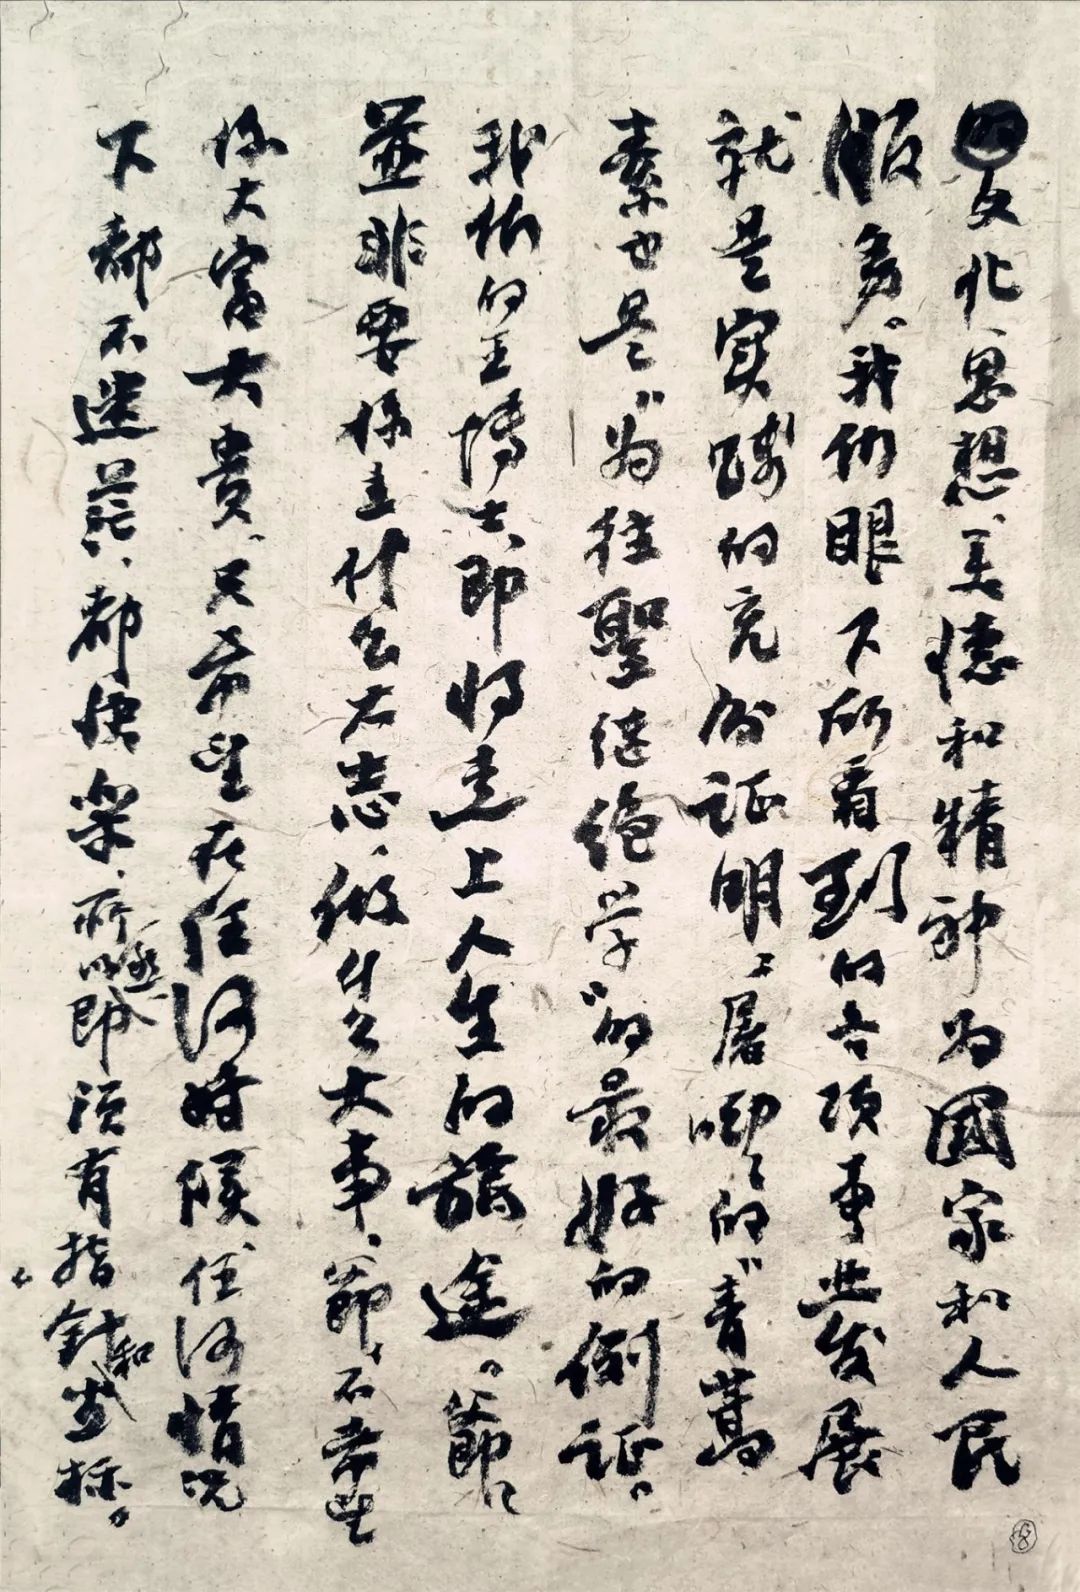 的文化、思想、美德和精神为國家和人民
服务。我们眼下所看到的各项事业发展
就是实践的充分证明。屠呦々的“青蒿
素也是“为往聖继绝学”的最好的例证。
我们的王博士即将走上人生的旅途。爺々
並非要你立什么大志、做什么大事、爺々不希望
你大富大貴、只希望在任何时候任何情况
下都不迷茫、都快樂、所以须有指針和坐标。
8